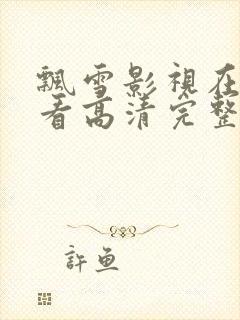 飄雪影視在
看高清完整
許魚